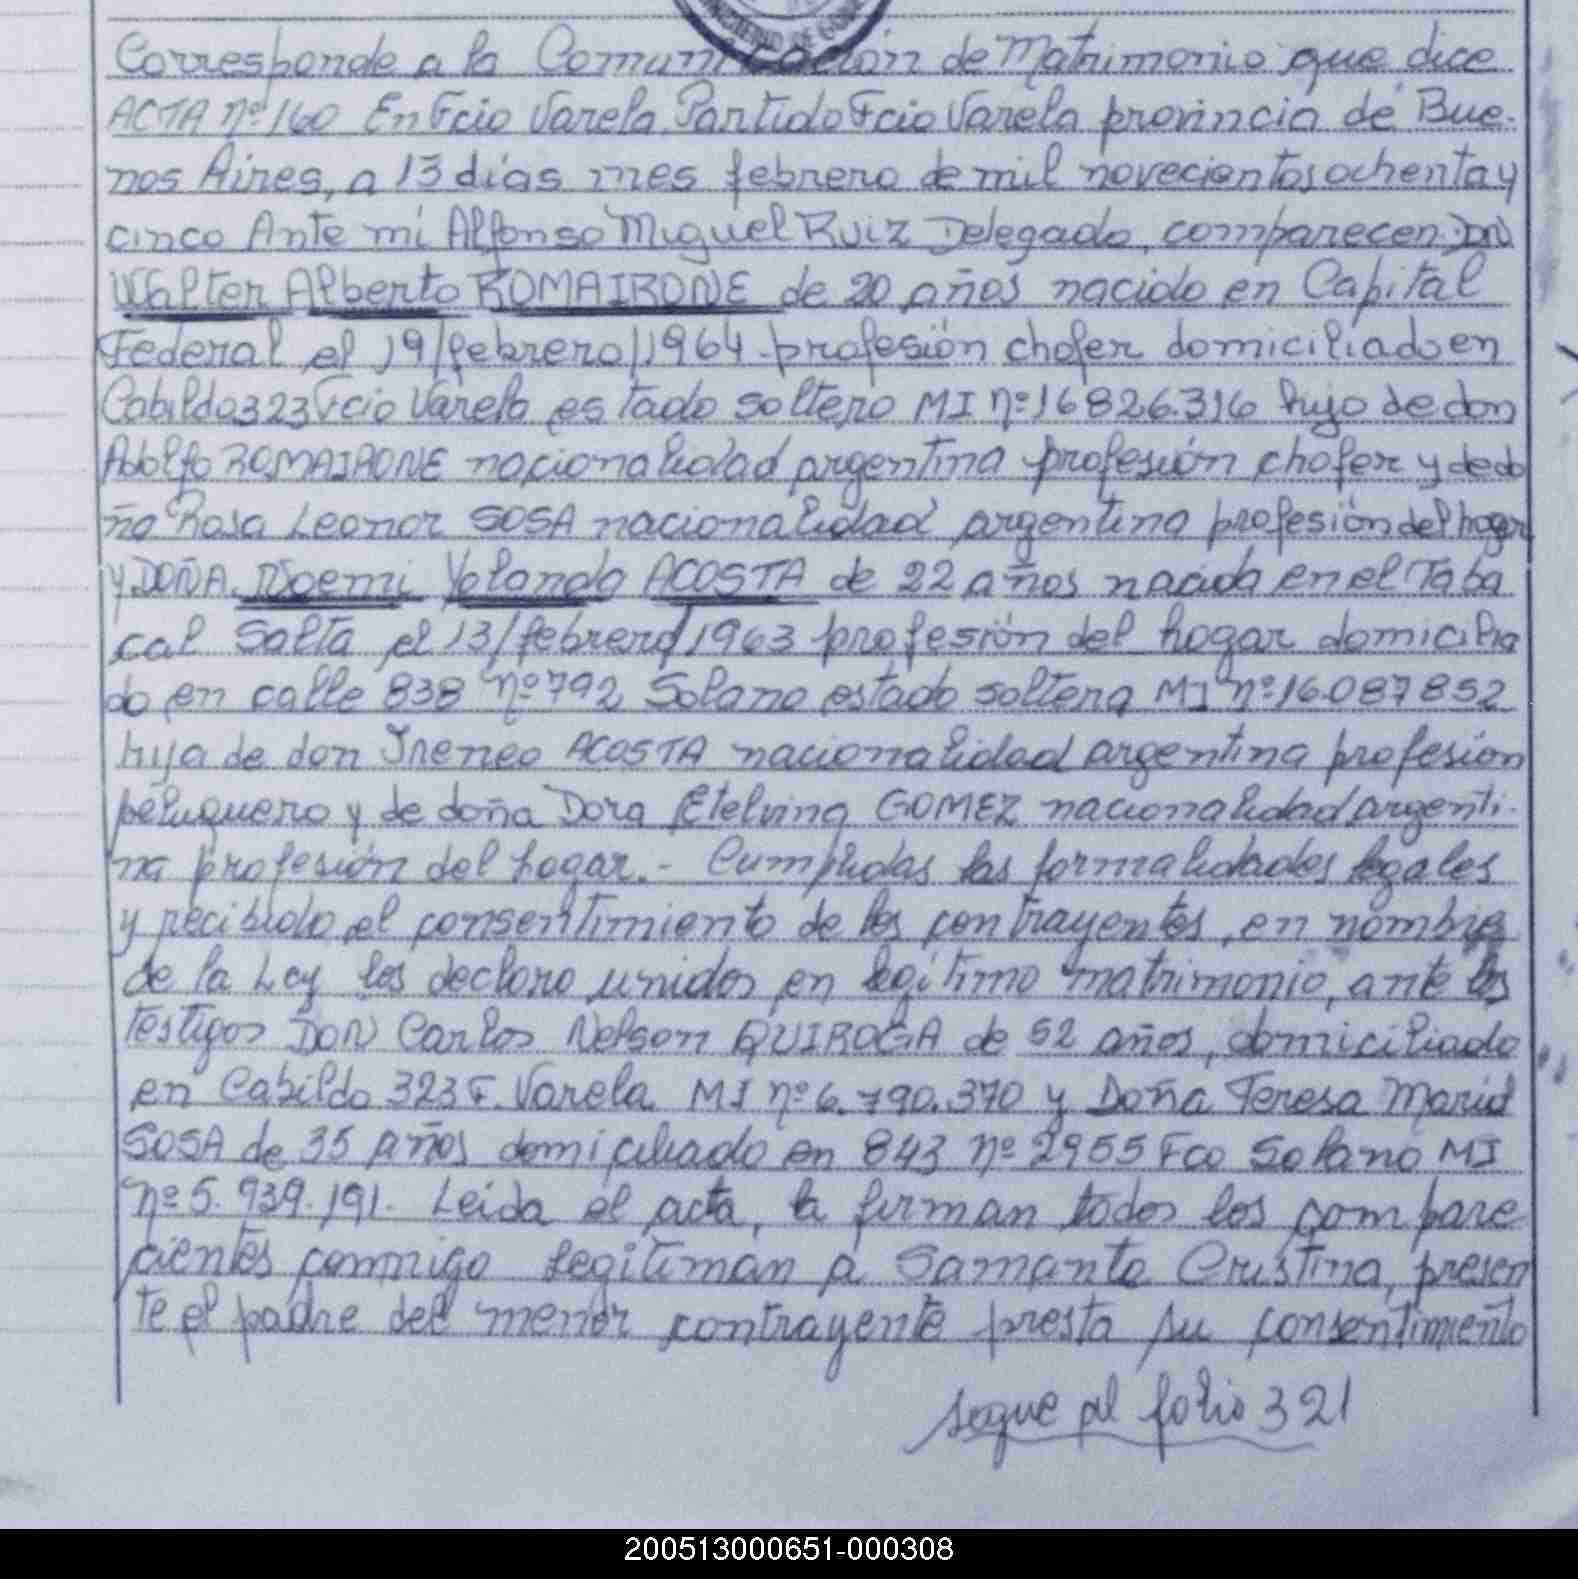 Corresponde a la Comunicación de Matrimonio que dice
ACTA Nº 160 En Fcio Varela Partido Fcio Varela provincia de Bue-
nos Aires, a 13 días mes febrero de mil novecientos ochenta y
cinco Ante mi Alfonso Miguel Ruiz Delegado, comparecen DON
Walter Alberto ROMAIRONE de 20 años nacido en Capital
Federal el 19/febrero/1964 profesión chofer domiciliado en
Cabildo 323 Fcio Varela estado soltero MI Nº 16826.316 hijo de don
Adolfo ROMAIRONE nacionalidad argentina profesión chofer y de do
ña Rosa Leonor SOSA nacionalidad argentina profesión del hogar
y DOÑA Noemi Yolanda ACOSTA de 22 años nacida en el Taba
cal Salta el 13/febrero/1963 profesión del hogar domicilia
do en calle 838 Nº 792 Solano estado soltera MI Nº 16.087852
hija de don Ireneo ACOSTA nacionalidad argentina profesión
peluquero y de doña Dora Etelvina GOMEZ nacionalidad argenti-
na profesión del hogar.- Cumplidas las formalidades legales
y recibido el consentimiento de los contrayentes, en nombre
de la Ley los declaro unidos en legítimo matrimonio, ante los
testigos DON Carlos Nelson QUIROGA de 52 años, domiciliado
en Cabildo 323 F. Varela MI Nº 6.790.370 y Doña Teresa Maria
SOSA de 35 años domiciliado en 843 Nº 2955 Fco Solano MI
Nº 5.939.191. Leida el acta, la firman todos los compare
cientes conmigo Legitiman a Samanta Cristina, presen
te el padre del menor contrayente presta su consentimiento
segue al folio 321
200513000651-000308